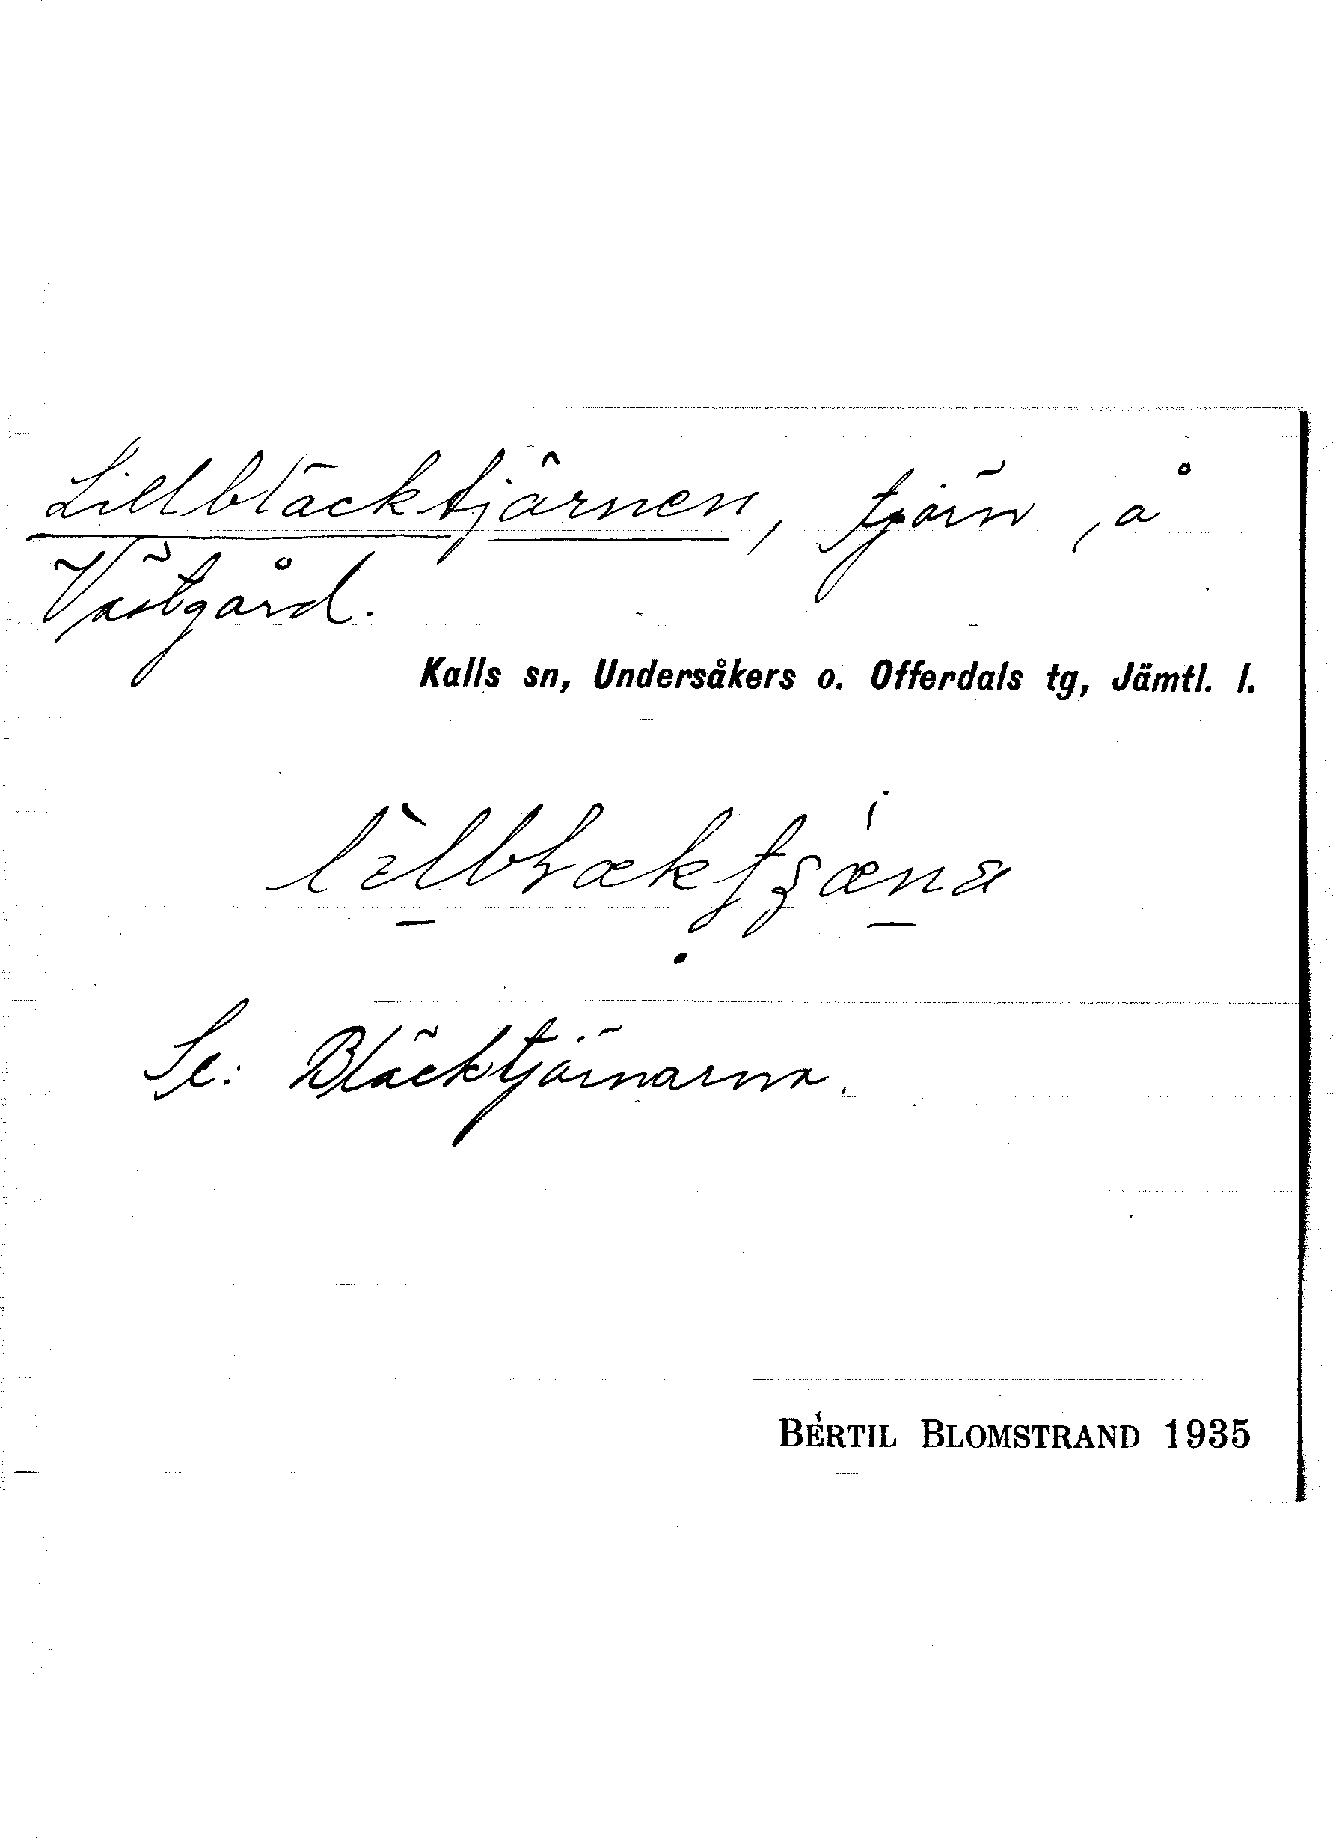 Lillbläcktjärnen, tjärn, å
Västgård.
Kalls sn, Undersåkers o. Offerdals tg, Jämtl. l.
Se: Bläcktjärnarna.
BERTIL BLOMSTRAND 1935